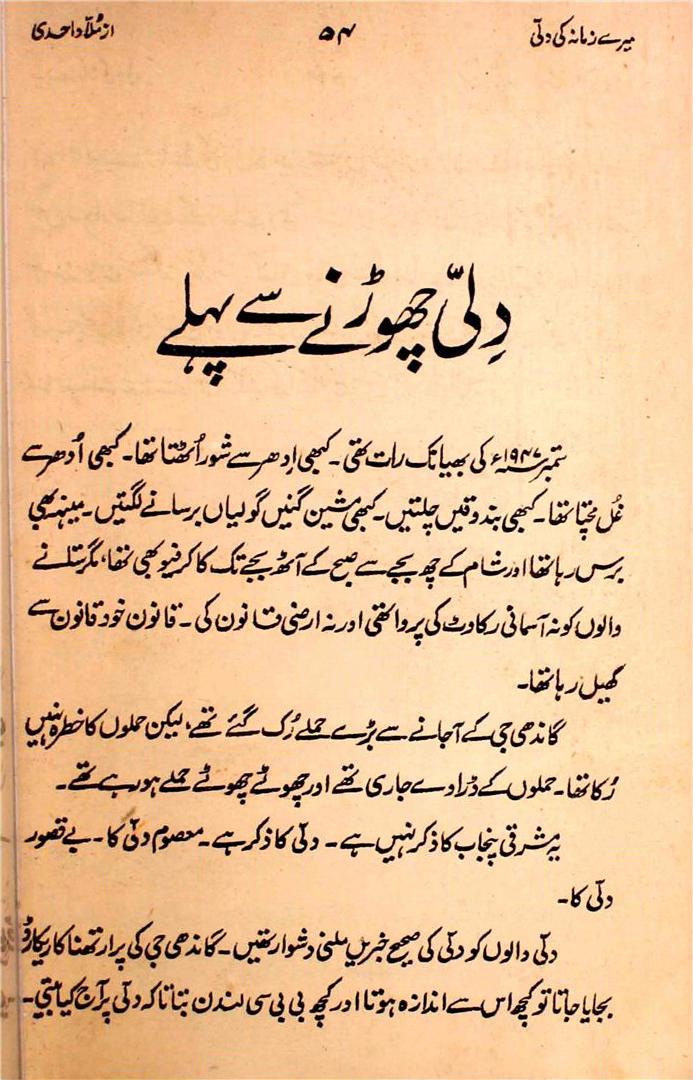 میرے زمانہ کی دلّی ۵۴ از مُلّا واحدی
دِلیّ چھوڑنے سے پہلے
ستمبر ۱۹۴۷ء کی بھیانک رات تھی۔ کبھی اِدھر سے شور اُٹھتا تھا۔ کبھی اُدھر سے
غُل مچتا تھا۔ کبھی بندوقیں چلتیں۔ کبھی مشین گنیں گولیاں برسانے لگتیں۔ مینہ بھی
برس رہا تھا اور شام کے چھ بجے سے صبح کے آٹھ بجے تک کا کرفیو بھی تھا، مگر ستانے
والوں کو نہ آسمانی رکاوٹ کی پروا تھی اور نہ ارضی قانون کی۔ قانون خود قانون سے
کھیل رہا تھا۔
گاندھی جی کے آجانے سے بڑے حملے رُک گئے تھے، لیکن حملوں کا خطرہ نہیں
رُکا تھا۔ حملوں کے ڈراوے جاری تھے اور چھوٹے چھوٹے حملے ہو رہے تھے۔
یہ مشرقی پنجاب کا ذکر نہیں ہے۔ دلّی کا ذکر ہے۔ معصوم دلّی کا۔ بے قصور
دلّی کا۔
دلّی والوں کو دلّی کی صحیح خبریں ملنی دشوار تھیں۔ گاندھی جی کی پرارتھنا کا ریکارڈ
بجایا جاتا تو کچھ اس سے اندازہ ہوتا اور کچھ بی بی سی لندن بتاتا کہ دلّی پر آج کیا بیتی۔